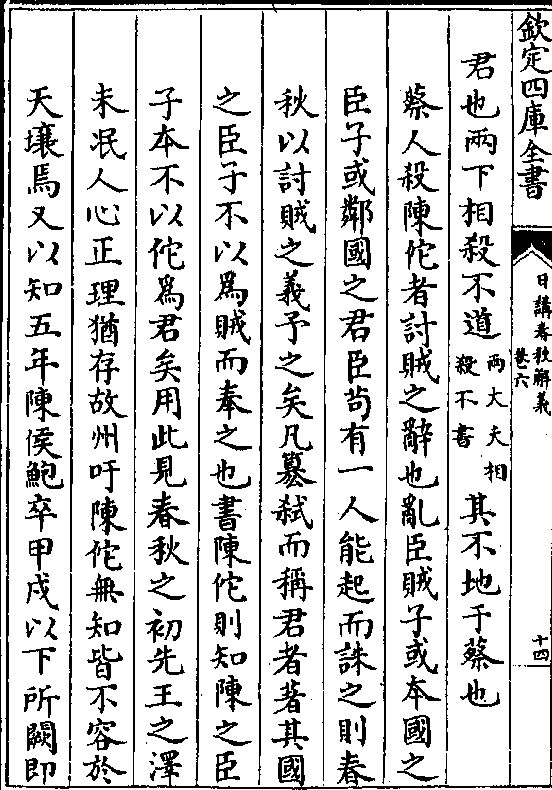 欽定四庫全書
日講春秋解義
卷六
十四
君也兩下相殺不道兩大夫相殺不書其不地于蔡也
蔡人殺陳佗者討賊之辭也亂臣賊子或本國之
臣子或鄰國之君臣茍有一人能起而誅之則春
秋以討賊之義予之矣凡簒弑而稱君者著其國
之臣子不以爲賊而奉之也書陳佗則知陳之臣
子本不以佗爲君矣用此見春秋之初先王之澤
未泯人心正理猶存故州吁陳佗無知皆不容於
天壤焉又以知五年陳侯鮑卒甲戌以下所闕即